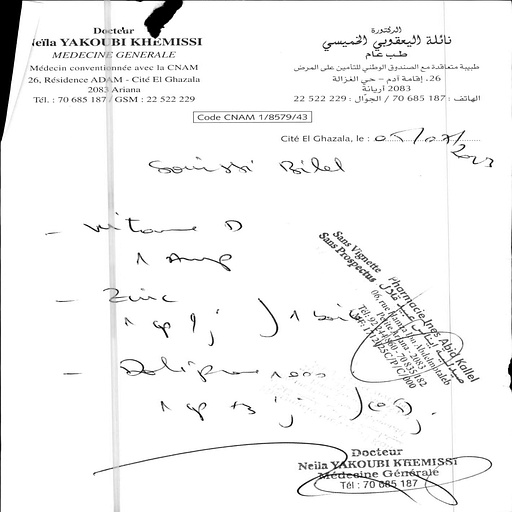 Docteur
Neïla YAKOUBI KHEMISSI
MEDECINE GENERALE
Médecin conventionnée avec la CNAM
26, Résidence ADAM - Cité El Ghazala
2083 Ariana
Tél. : 70 685 187 / GSM : 22 522 229
الدكتورة
نائلة اليعقوبي الخميسي
طب عام
طبيبة متعاقدة مع الصندوق الوطني للتأمين على المرض
26، إقامة آدم - حي الغزالة
2083 أريانة
الهاتف : 187 685 70 / الجوال : 229 522 22
Code CNAM 1/8579/43
Cité El Ghazala, le :
Souissi Bilel
- Vitamine D
1 Amp
- Zinc
1 gp /j ) 1 boi
- Doliprane 1000
1 gp x3 /j
Sans Vignette
Sans Prospectus
Pharmacie Ines Abid Kallel
Docteur
Neila YAKOUBI KHEMISSI
Médecine Générale
Tél : 70 685 187